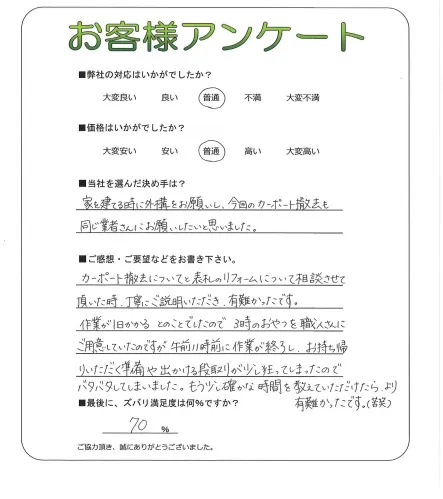 お客様アンケート
■弊社の対応はいかがでしたか？
大変良い 良い 普通 不満 大変不満
■価格はいかがでしたか？
大変安い 安い 普通 高い 大変高い
■当社を選んだ決め手は？
家を建てる時に外構をお願いし、今回のカーポート撤去も
同じ業者さんにお願いしたいと思いました。
■ご感想・ご要望などをお書き下さい。
カーポート撤去についてと表札のリフォームについて相談させて
頂いた時、丁寧にご説明いただき、有難かったです。
作業が1日かかるとのことでしたので3時のおやつを職人さんに
ご用意していたのですが午前11時前に作業が終了し、お持ち帰
りいただく準備や出かける段取りが少し狂ってしまったので
バタバタしてしまいました。もう少し確かな時間を教えていただけたら、より
有難かったです。(苦笑)
■最後に、ズバリ満足度は何％ですか？
70 ％
ご協力頂き、誠にありがとうございました。